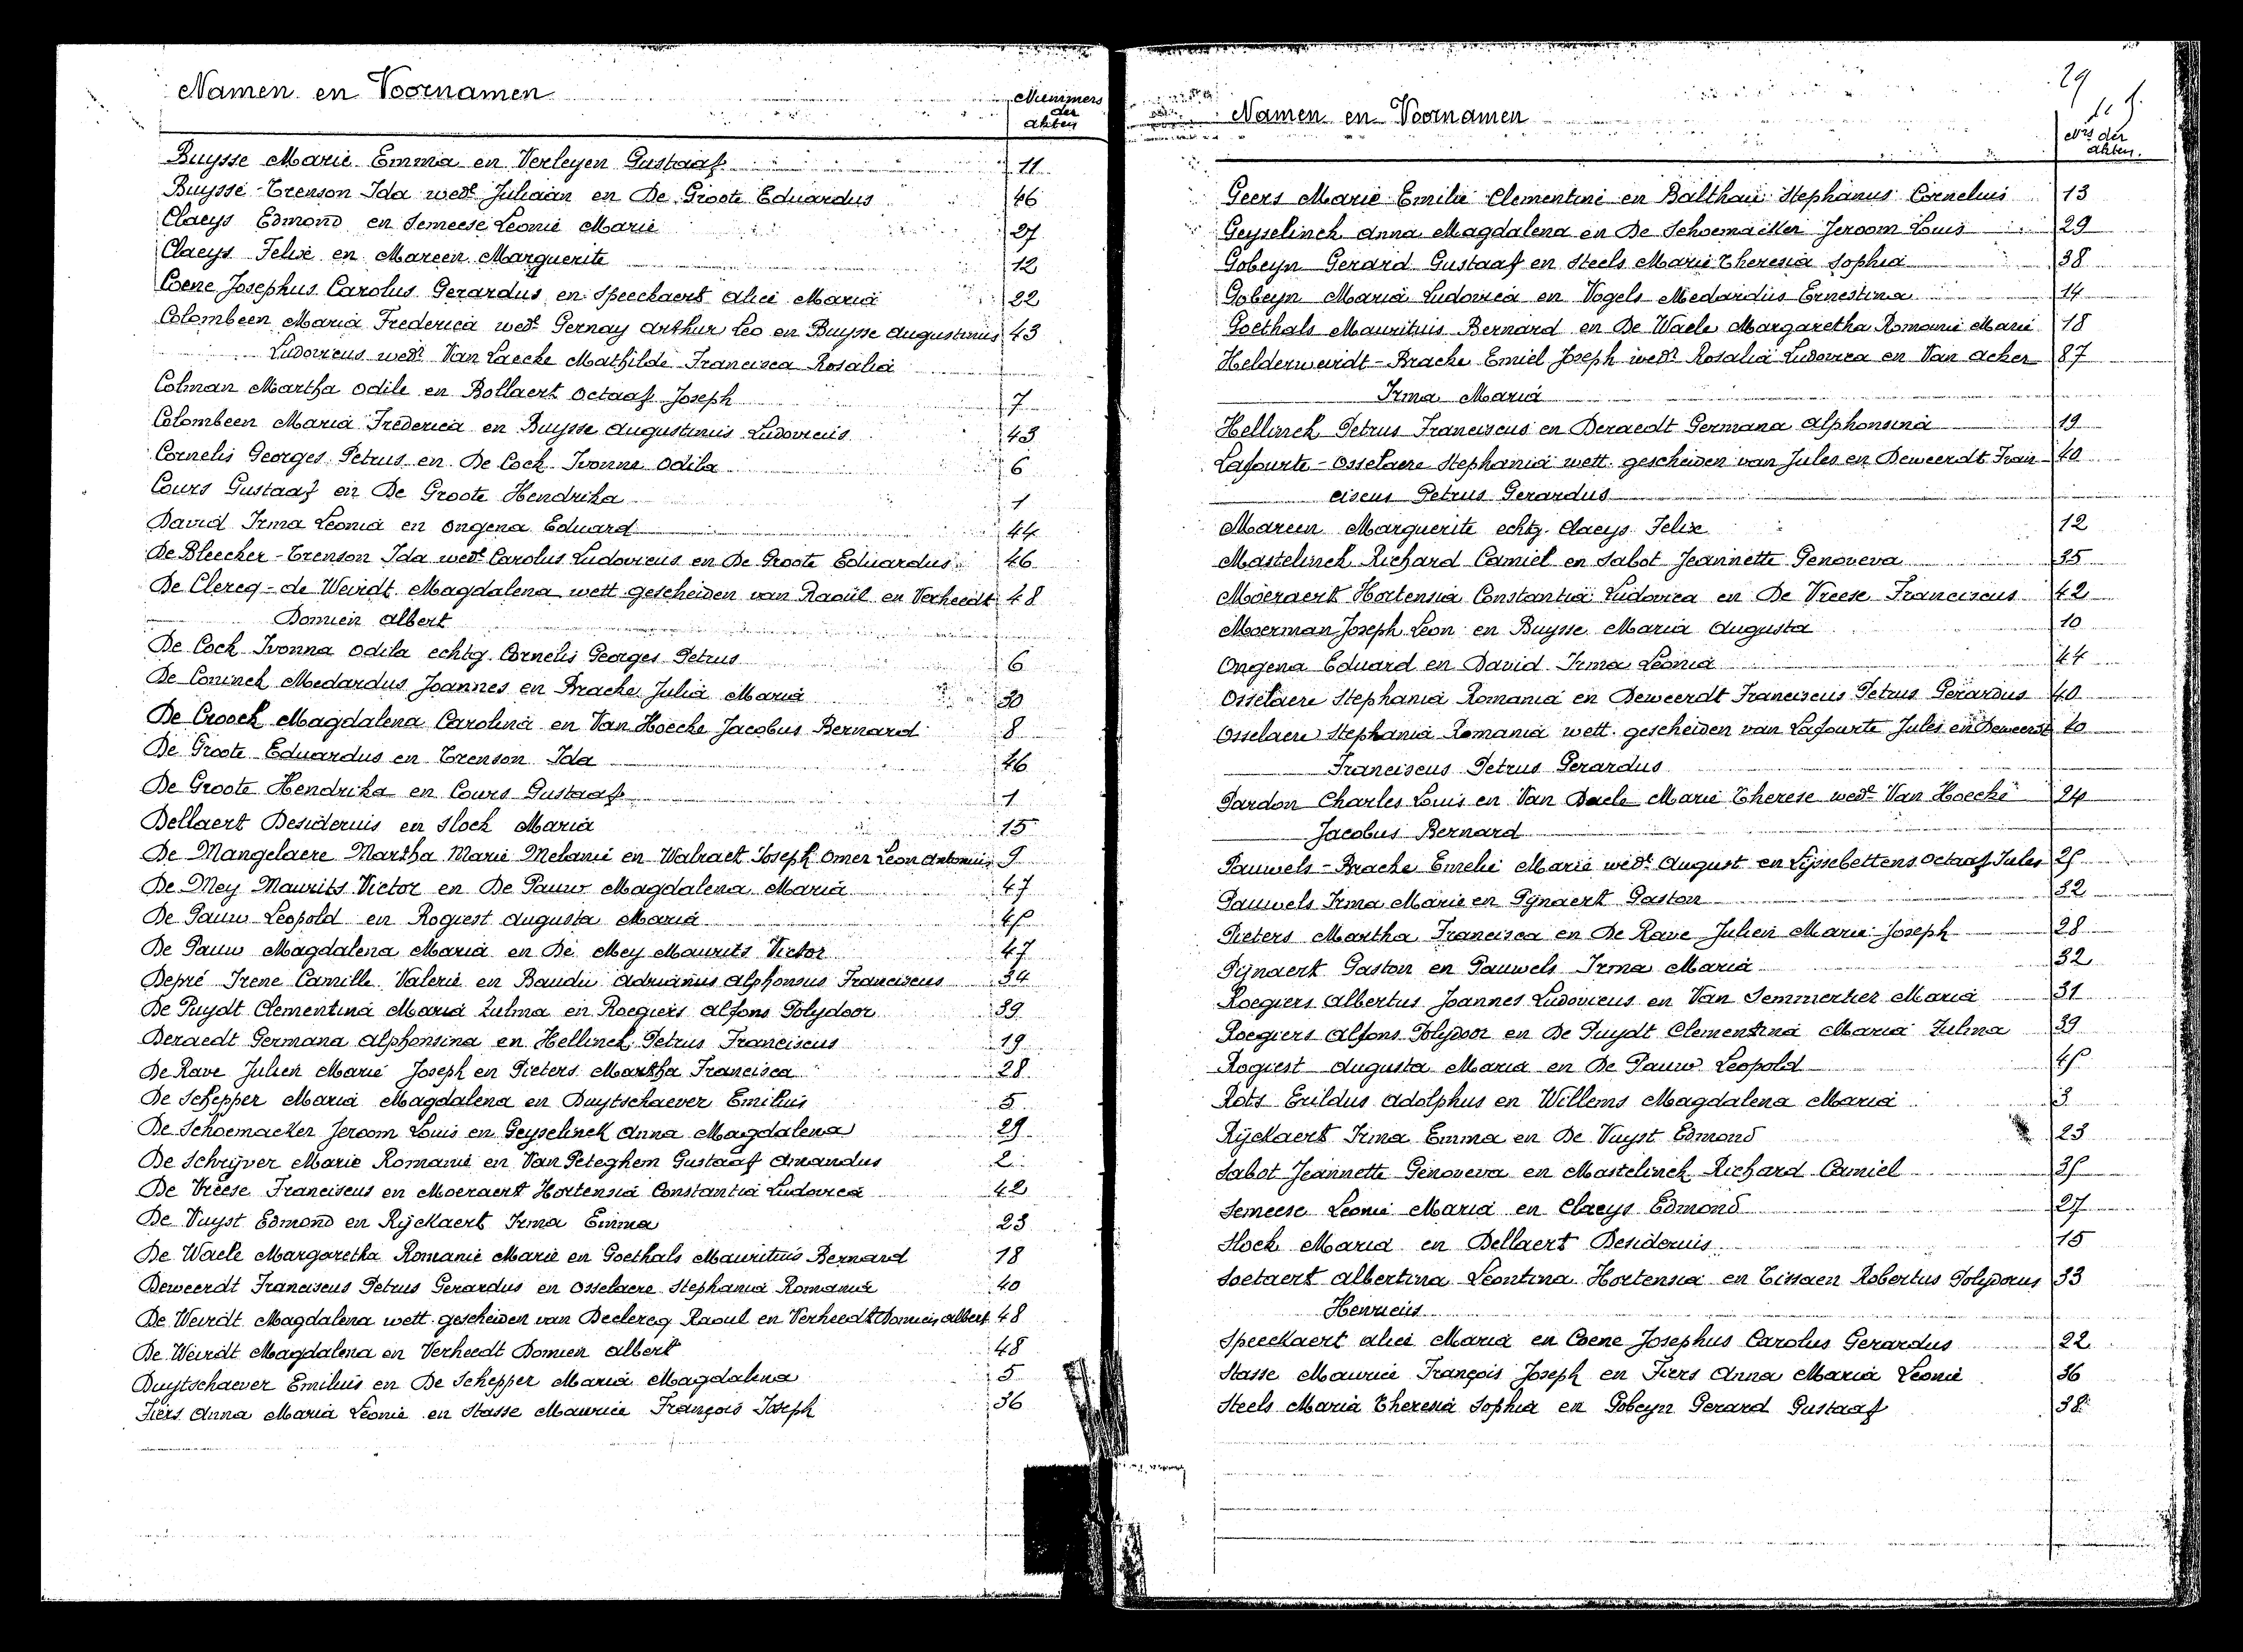 Namen en Voornamen
Nummers
der
akten
Buysse Marie Emma en Verleyen Gustaaf 11
Buysse-Trenson Ida wedᵉ Juliaan en De Groote Eduardus 46
Claeys Edmond en Semeese Leonie Marie 27
Claeys Felix en Mareen Marguerite 12
Coene Josephus Carolus Gerardus en Speeckaert Alice Maria 22
Colombeen Maria Frederica wedᵉ Gernay Arthur Leo en Buysse Augustinus 43
Ludovicus wedʳ Van Laecke Mathilde Francisca Rosalia
Colman Martha Odile en Bollaert Octaaf Joseph 7
Colombeen Maria Frederica en Buysse Augustinus Ludovicus 43
Cornelis Georges Petrus en De Cock Ivonna Odila 6
Cours Gustaaf en De Groote Hendrika 1
David Irma Leonia en Ongena Eduard 44
De Bleecker-Trenson Ida wedᵉ Carolus Ludovicus en De Groote Eduardus 46
De Clercq-de Weirdt Magdalena wett gescheiden van Raoül en Verheedt 48
Domien Albert
De Cock Ivonna Odila echtg. Cornelis Georges Petrus 6
De Coninck Medardus Joannes en Bracke Julia Maria 30
De Croock Magdalena Carolina en Van Hoecke Jacobus Bernard 8
De Groote Eduardus en Trenson Ida 46
De Groote Hendrika en Cours Gustaaf 1
Dellaert Desiderius en Slock Maria 15
De Mangelaere Martha Marie Melanie en Walraet Joseph Omer Leon Antonius 9
De Mey Maurits Victor en De Pauw Magdalena Maria 47
De Pauw Leopold en Rogiest Augusta Maria 45
De Pauw Magdalena Maria en De Mey Maurits Victor 47
Depré Irene Camille Valerie en Baudu Adrianus Alphonsus Franciscus 34
De Puydt Clementina Maria Zulma en Roegiers Alfons Polydoor 39
Deraedt Germana Alphonsina en Hellinck Petrus Franciscus 19
De Rave Julien Marie Joseph en Pieters Martha Francisca 28
De Schepper Maria Magdalena en Duytschaever Emilius 5
De Schoemacker Jeroom Louis en Geyselinck Anna Magdalena 29
De Schrijver Marie Romanie en Van Peteghem Gustaaf Amandus 2
De Vreese Franciscus en Moeraert Hortensia Constantia Ludovica 42
De Vuyst Edmond en Rijckaert Irma Emma 23
De Waele Margaretha Romanie Marie en Goethals Mauritius Bernard 18
Deweerdt Franciscus Petrus Gerardus en Osselaere Stephania Romania 40
De Weirdt Magdalena wett. gescheiden van Declercq Raoul en Verheedt Domien Albert 48
De Weirdt Magdalena en Verheedt Domien Albert 48
Duytschaever Emilius en De Schepper Maria Magdalena 5
Fiers Anna Maria Leonie en Stasse Maurice François Joseph 36
29
Namen en Voornamen
Nʳˢ der
akten.
Geers Marie Emilie Clementine en Balthau Stephanus Cornelius 13
Geyselinck Anna Magdalena en De Schoemacker Jeroom Louis 29
Gobeyn Gerard Gustaaf en Steels Marie Theresia Sophia 38
Gobeyn Maria Ludovica en Vogels Medardus Ernestina 14
Goethals Mauritius Bernard en De Waele Margaretha Romanie Marie 18
Helderweirdt-Bracke Emiel Joseph wedʳ Rosalia Ludovica en Van Acker 37
Irma Maria
Hellinck Petrus Franciscus en Deraedt Germana Alphonsina 19
Lafourte-Osselaere Stephania wett. gescheiden van Jules en Deweerdt Fran- 40
ciscus Petrus Gerardus
Mareen Marguerite echtg. Claeys Felix 12
Mastelinck Richard Camiel en Sabot Jeannette Genoveva 35
Moeraert Hortensia Constantia Ludovica en De Vreese Franciscus 42
Moerman Joseph Leon en Buysse Maria Augusta 10
Ongena Eduard en David Irma Leonia 44
Osselaere Stephania Romania en Deweerdt Franciscus Petrus Gerardus 40
Osselaere Stephania Romania wett. gescheiden van Lafourte Jules en Deweerdt 40
Franciscus Petrus Gerardus
Pardon Charles Louis en Van Daele Marie Therese wedᵉ Van Hoecke 24
Jacobus Bernard
Pauwels-Bracke Emelie Marie wedᵉ August en Lijssebettens Octaaf Jules 25
Pauwels Irma Marie en Pijnaert Gaston 32
Pieters Martha Francisca en De Rave Julien Marie Joseph 28
Pijnaert Gaston en Pauwels Irma Maria 32
Roegiers Albertus Joannes Ludovicus en Van Semmertier Maria 31
Roegiers Alfons Polydoor en De Puydt Clementina Maria Zulma 39
Rogiest Augusta Maria en De Pauw Leopold 45
Rots Erildus Adolphus en Willems Magdalena Maria 3
Rijckaert Irma Emma en De Vuyst Edmond 23
Sabot Jeannette Genoveva en Mastelinck Richard Camiel 35
Semeese Leonie Maria en Claeys Edmond 27
Slock Maria en Dellaert Desiderius 15
Soetaert Albertina Leontina Hortensia en Tissaen Robertus Polydorus 33
Henricus
Speeckaert Alice Maria en Coene Josephus Carolus Gerardus 22
Stasse Maurice François Joseph en Fiers Anna Maria Leonie 36
Steels Maria Theresia Sophia en Gobeyn Gerard Gustaaf 38